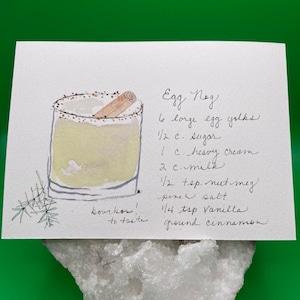 Egg Nog
6 large egg yolks
1/2 c. sugar
1 c. heavy cream
2 c. milk
1/2 tsp. nutmeg
pinch salt
1/4 tsp vanilla
ground cinnamon
bourbon!
to taste